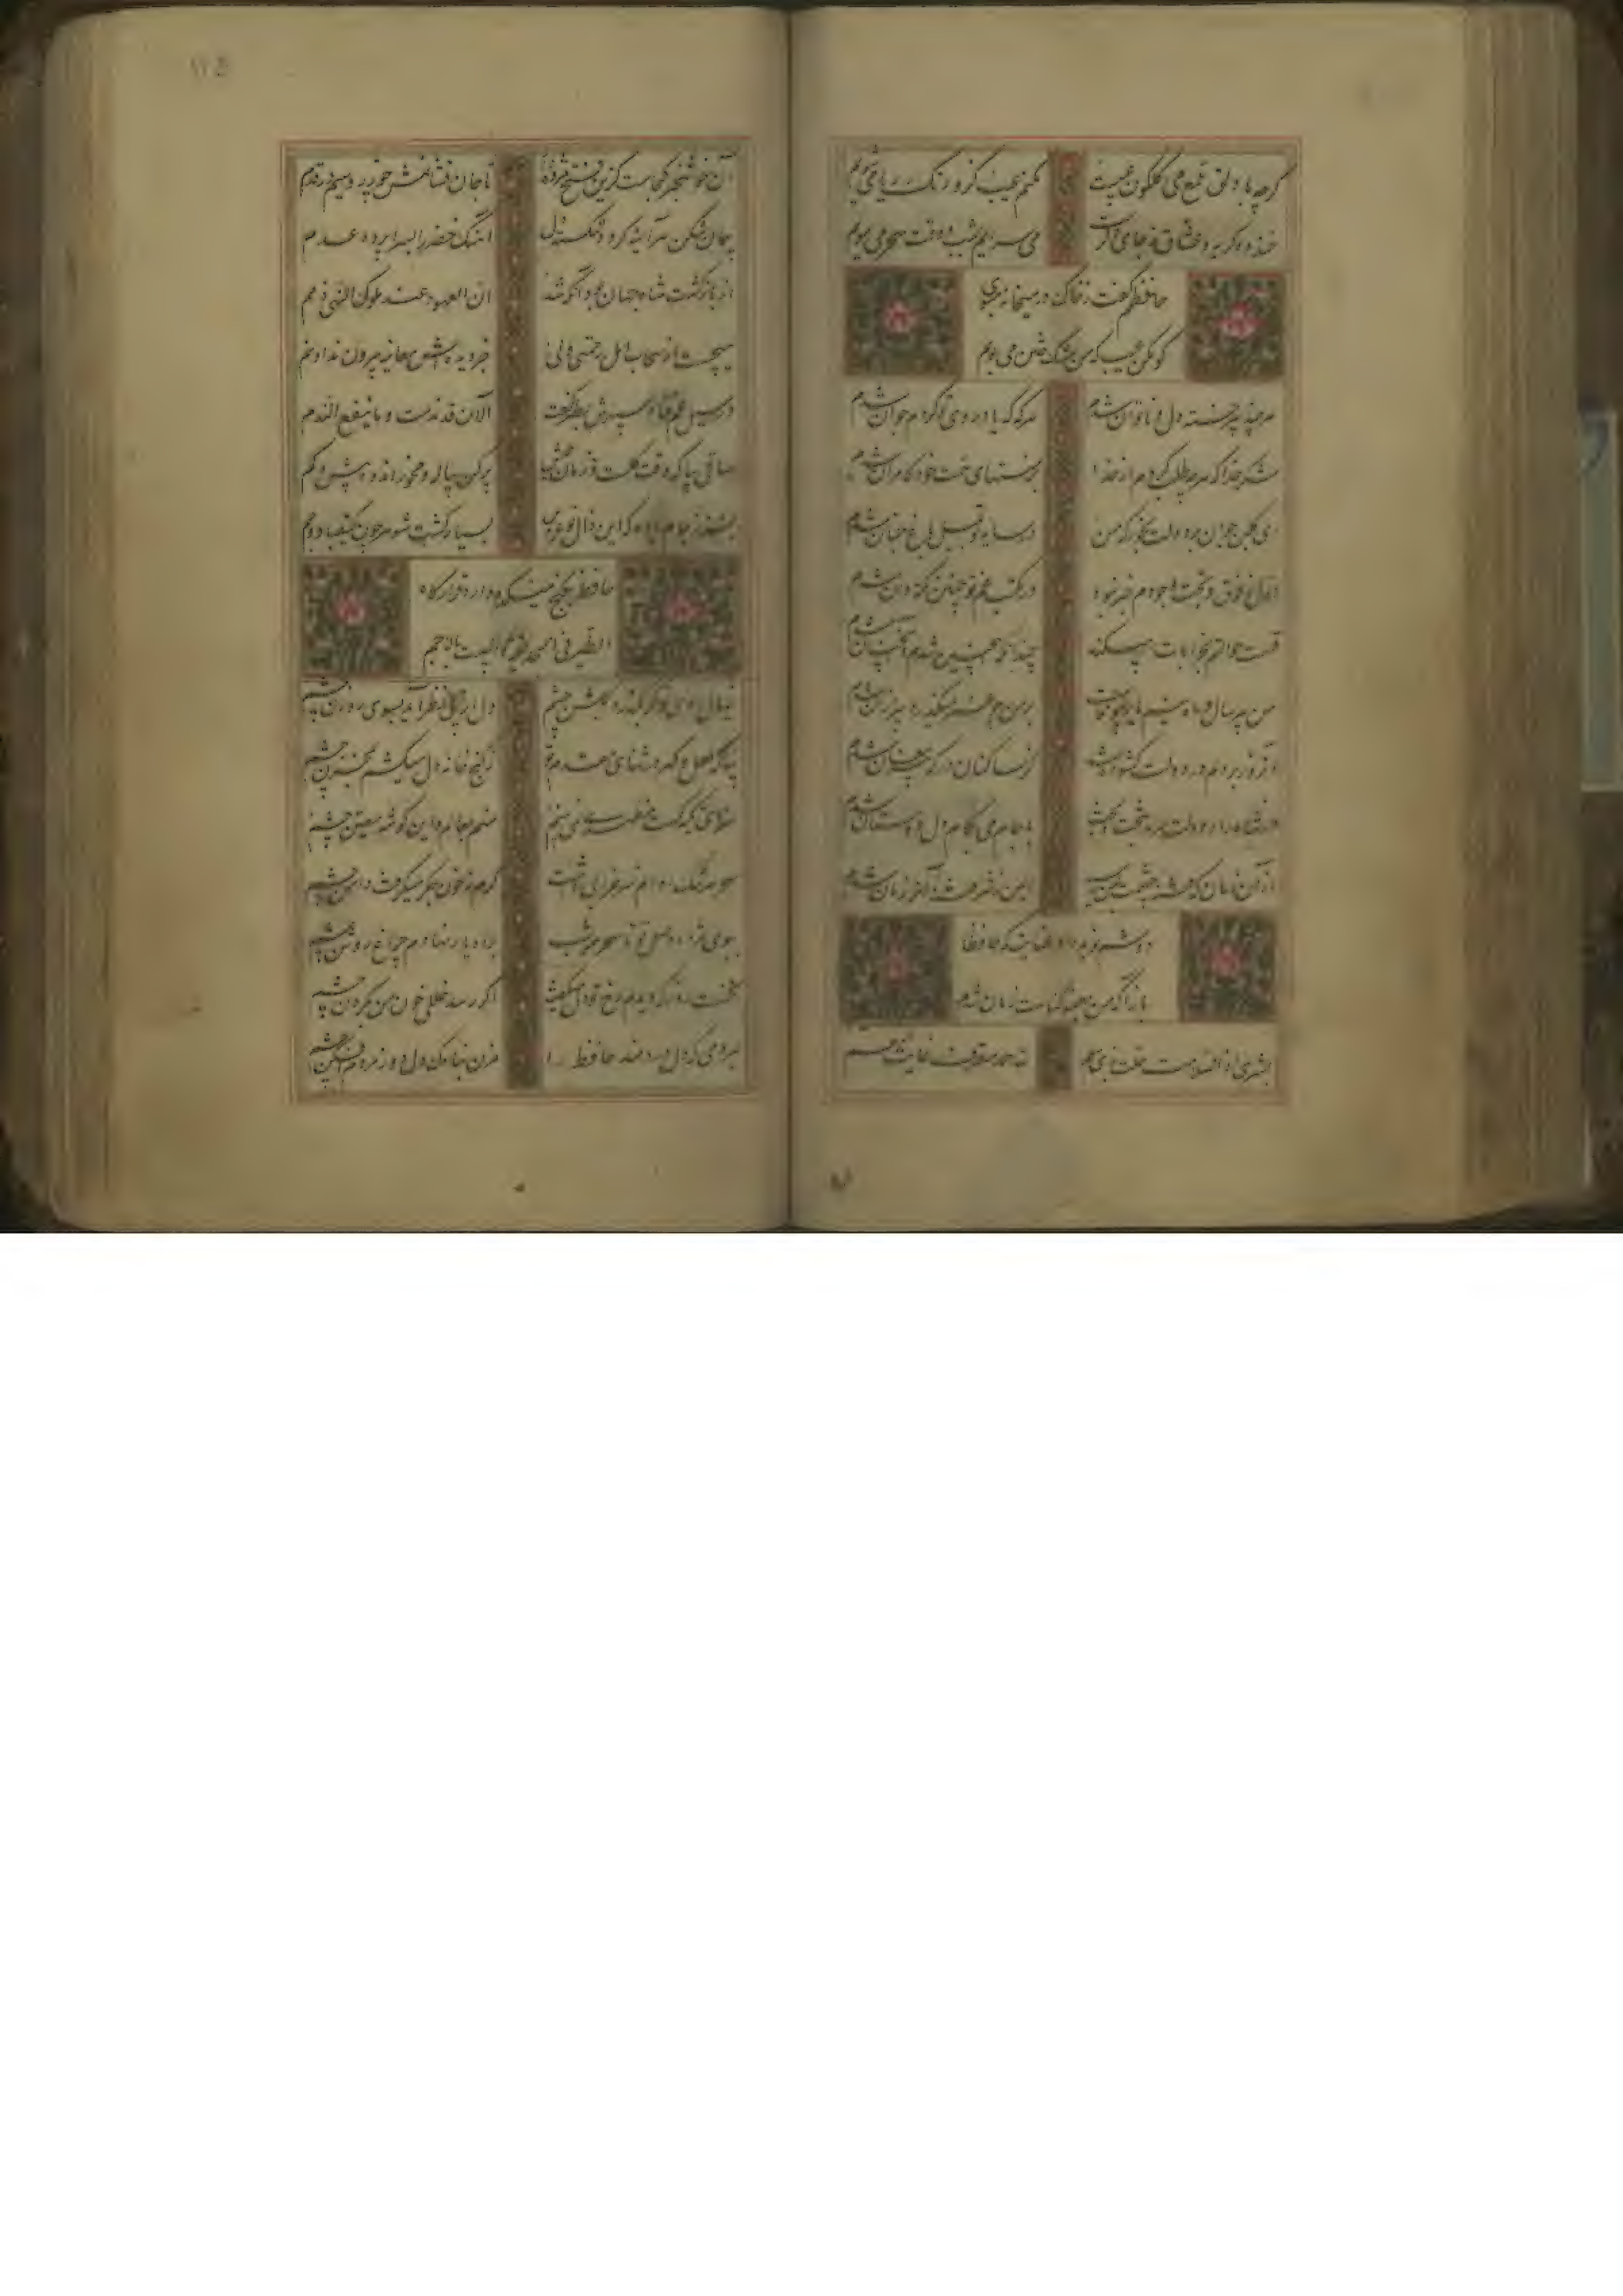 گرچه با دلق ملمع می گلگون عیبست
مکنم عیب کزو رنگ ریا می شویم
خنده و گریه عشاق ز جای دگرست
می سرایم بشب و وقت سحر می مویم
حافظم گفت که خاک در میخانه مبوی
گو مکن عیب که من مشک ختن می بویم
هر چند پیر و خسته دل و ناتوان شدم
هر گه که یاد روی تو کردم جوان شدم
شکر خدا که هر چه طلب کردم از خدا
بر منتهای همت خود کامران شدم
ای گلبن جوان بر دولت بخور که من
در سایه تو بلبل باغ جنان شدم
اول ز فوق و تحت وجودم خبر نبود
در مکتب غم تو چنین نکته دان شدم
قسمت حوالتم بخرابات میکند
چندانکه همچنین شدم و همچنان شدم
من پیر سال و ماه نیم یار بیوفاست
بر من چو عمر میگذرد پیر از آن شدم
آن روز بر دلم در دولت گشوده شد
کز ساکنان درگه پیر مغان شدم
در شاهراه دولت سرمد بتخت بخت
با جام می بکام دل دوستان شدم
از آن زمان که فتنه چشمت بمن رسید
ایمن ز شر فتنه آخر زمان شدم
دوشم نوید داد عنایت که حافظا
باز آ که من بعفو گناهت ضمان شدم
بشری اذ السلامة حلت بذی سلم
لله حمد معترف غایة النعم
آن خوش خبر کجاست کزین فتح مژده
تا جان فشانمش چو زر و سیم در قدم
پیمان شکن هر آینه گردد شکسته دل
ان العهود عند ملوک النهی ذمم
از بازگشت شاه
آهنگ خصم را بسراپرده عدم
میجست از سحاب امل رحمتی ولی
جز دیده اش معاینه بیرون نداد نم
در نیل غم فتاد سپهرش بطنز گفت
الآن قد ندمت و ما ینفع الندم
ساقی بیا که وقت گلست و زمان عیش
پر کن پیاله و مخور اندوه بیش و کم
بشنو ز جام باده که این زال نوعروس
بسیار کشت شوهر چون کیقباد و جم
حافظ بکنج میکده دارد قرارگاه
الطیر فی الحدیقة و اللیث بالاجم
خیال روی تو گر بگذرد بگلشن چشم
دل از پی نظر آید بسوی روزن چشم
بیا که لعل و گهر در نثار مقدم تو
ز گنج خانه دل میکشم بمخزن چشم
سزای تکیه گهت منظری نمی بینم
منم بعالم و این گوشه معین چشم
سحر سرشک روانم سر خرابی داشت
گرم نه خون جگر میگرفت دامن چشم
ببوی مژده وصل تو تا سحر هر شب
براه باد نهادم چراغ روشن چشم
نخست روز که دیدم رخ تو دل میگفت
اگر رسد خللی خون من بگردن چشم
بمردمی که دل دردمند حافظ را
مزن بناوک دلدوز مردم افکن چشم